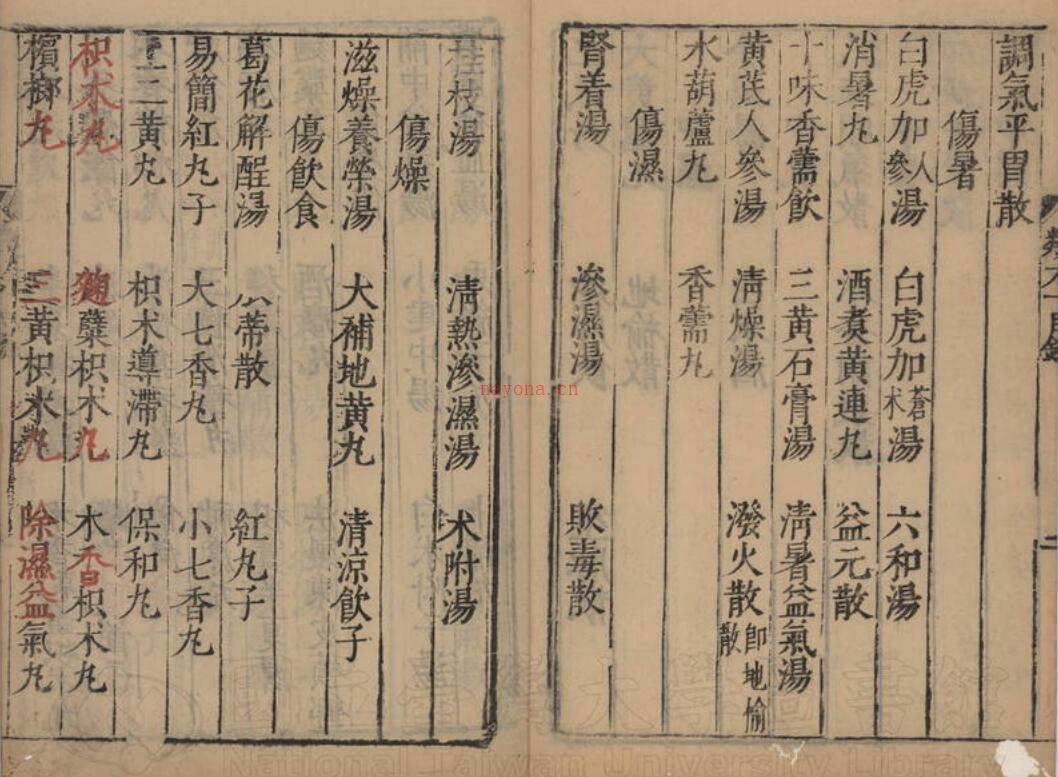 調氣平胃散
傷暑
白虎加人參湯 白虎加蒼术湯 六和湯
消暑丸 酒煑黄連丸 益元散
十味香薷飲 三黄石膏湯 清暑益氣湯
黄芪人參湯 清燥湯 潑火散即地榆散
水葫蘆丸 香薷丸
傷濕
腎着湯 滲濕湯 敗毒散
桂枝湯 清熱滲濕湯 术附湯
傷燥
滋燥養榮湯 大補地黄丸 清涼飲子
傷飲食
葛花解酲湯 蒂散 紅丸子
易簡紅丸子 大七香丸 小七香丸
三黄丸 枳术導滯丸 保和丸
枳术丸 麯糵枳术丸 木香枳术丸
檳榔丸 三黄枳术丸 除濕益氣丸
nayona.cn
National Taiwan University Library